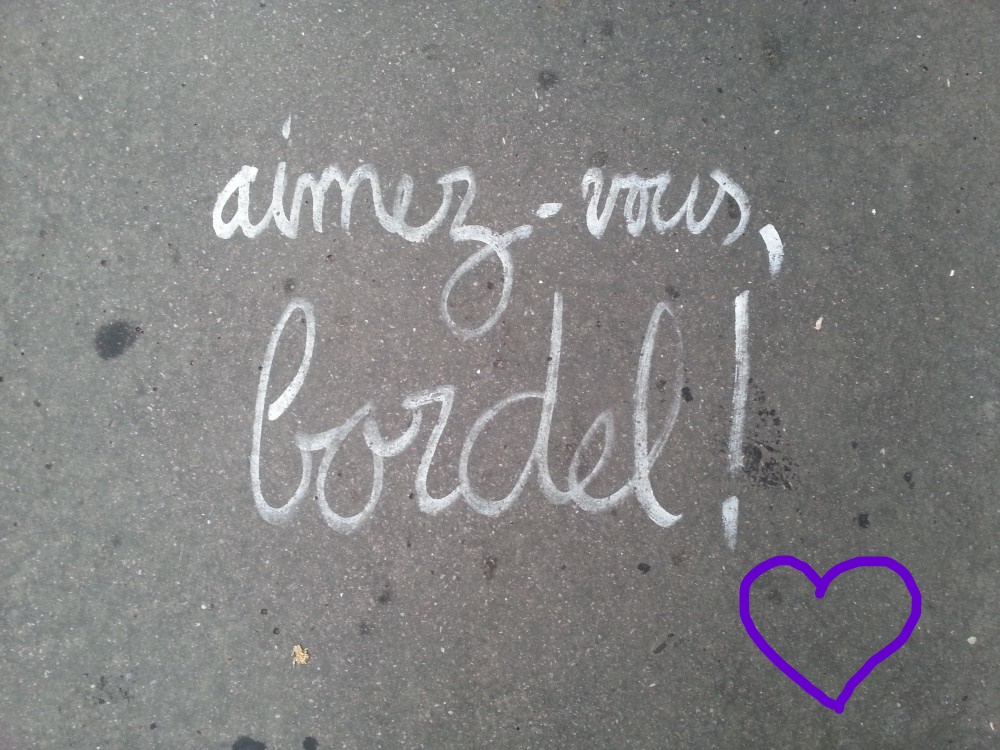 aimez-vous,
bordel!